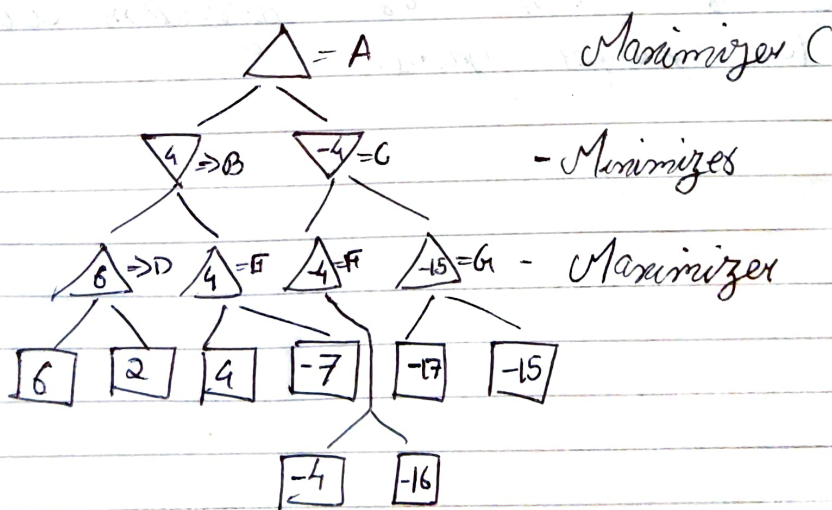 = A Maximizer (
4 ⇒B -4 =C - Minimizer
6 ⇒D 4 =E -4 =F -15 =G - Maximizer
6 2 4 -7 -17 -15
-4 -16